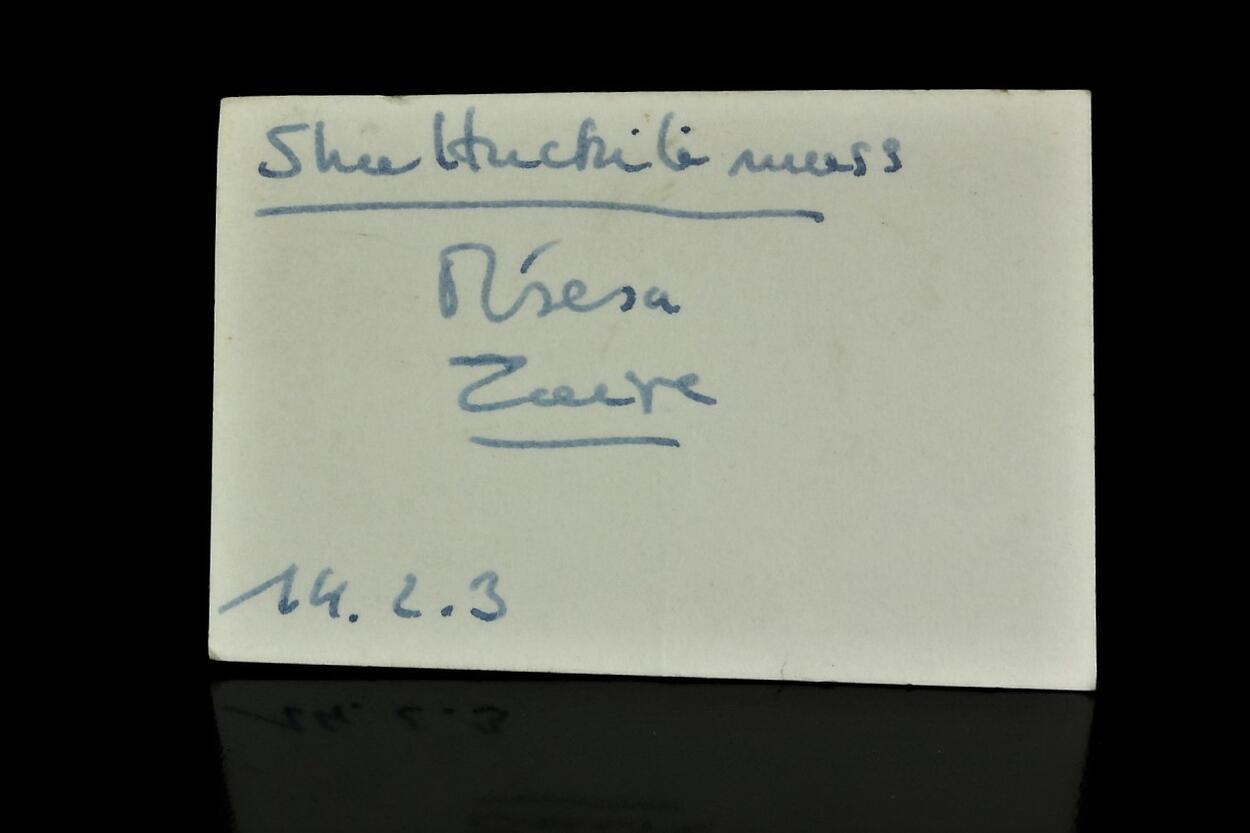 Shattuckite mass
M'sesa
Zaire
14. 2.3